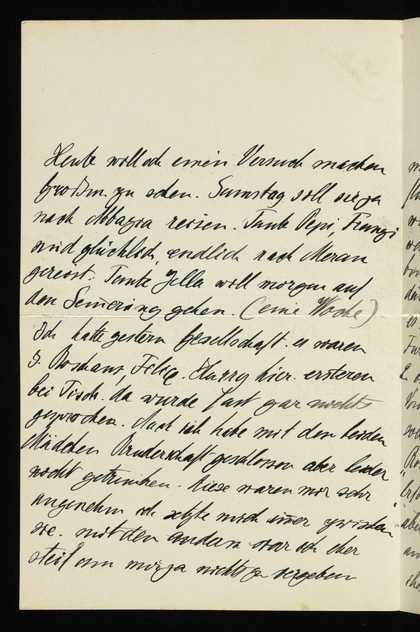 Heute will ich einen Versuch machen
Großm. zu sehen. Samstag soll sie ja
nach Abbazia reisen. Tante Pepi, Franzi
sind glücklich, endlich nach Meran
gereist. Tante Jella will morgen auf
den Semmering gehen. (eine Woche)
Ich hatte gestern Gesellschaft. es waren
Felix, Harry hier. ersteren
bei Tisch. da wurde fast gar nichts
gesprochen. Auch ich habe mit den beiden
Mädchen Bruderschaft geschlossen aber leider
nicht getrunken. diese waren mir sehr
angenehm ich setzte mich immer zwischen
sie. mit den andern war ich eher
steif um mir ja nichts zu vergeben